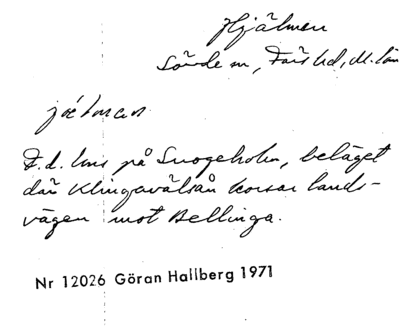 Hjälmen
Sövde sn, Färs hd, M. län
F.d. hus på Snogeholm, beläget
där Klingavälsån korsar lands-
vägen mot Bellinga.
Nr 12026 Göran Hallberg 1971